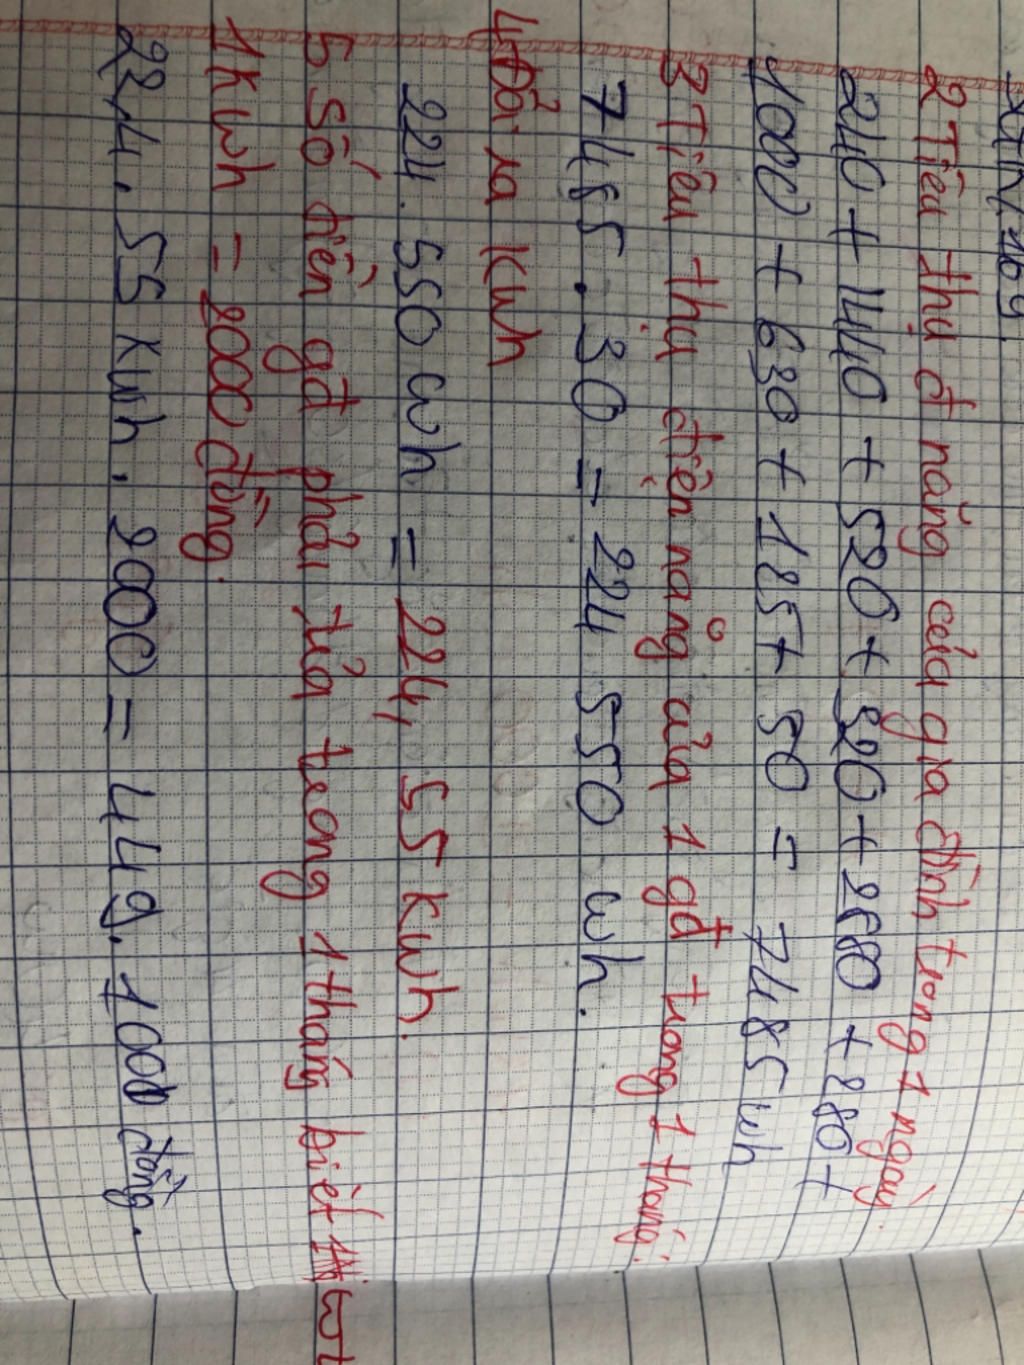 2 Tiêu thụ đ năng của gia đình trong 1 ngày.
240 + 1440 + 520 + 520 + 2880 + 280 +
1000 + 630 + 185 + 50 = 7485 wh
3 Tiêu thụ điện năng của 1 gđ trong 1 tháng.
7485 . 30 = 224 550 wh.
4 Đổi ra Kwh
224 . 550 wh = 224,55 Kwh.
5 số tiền gđ phải trả trong 1 tháng biết
1 Kwh = 2000 đồng.
224,55 Kwh . 2000 = 449.100 đồng.